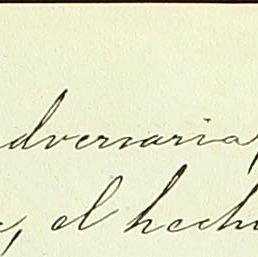 adversaria,
, el hecho